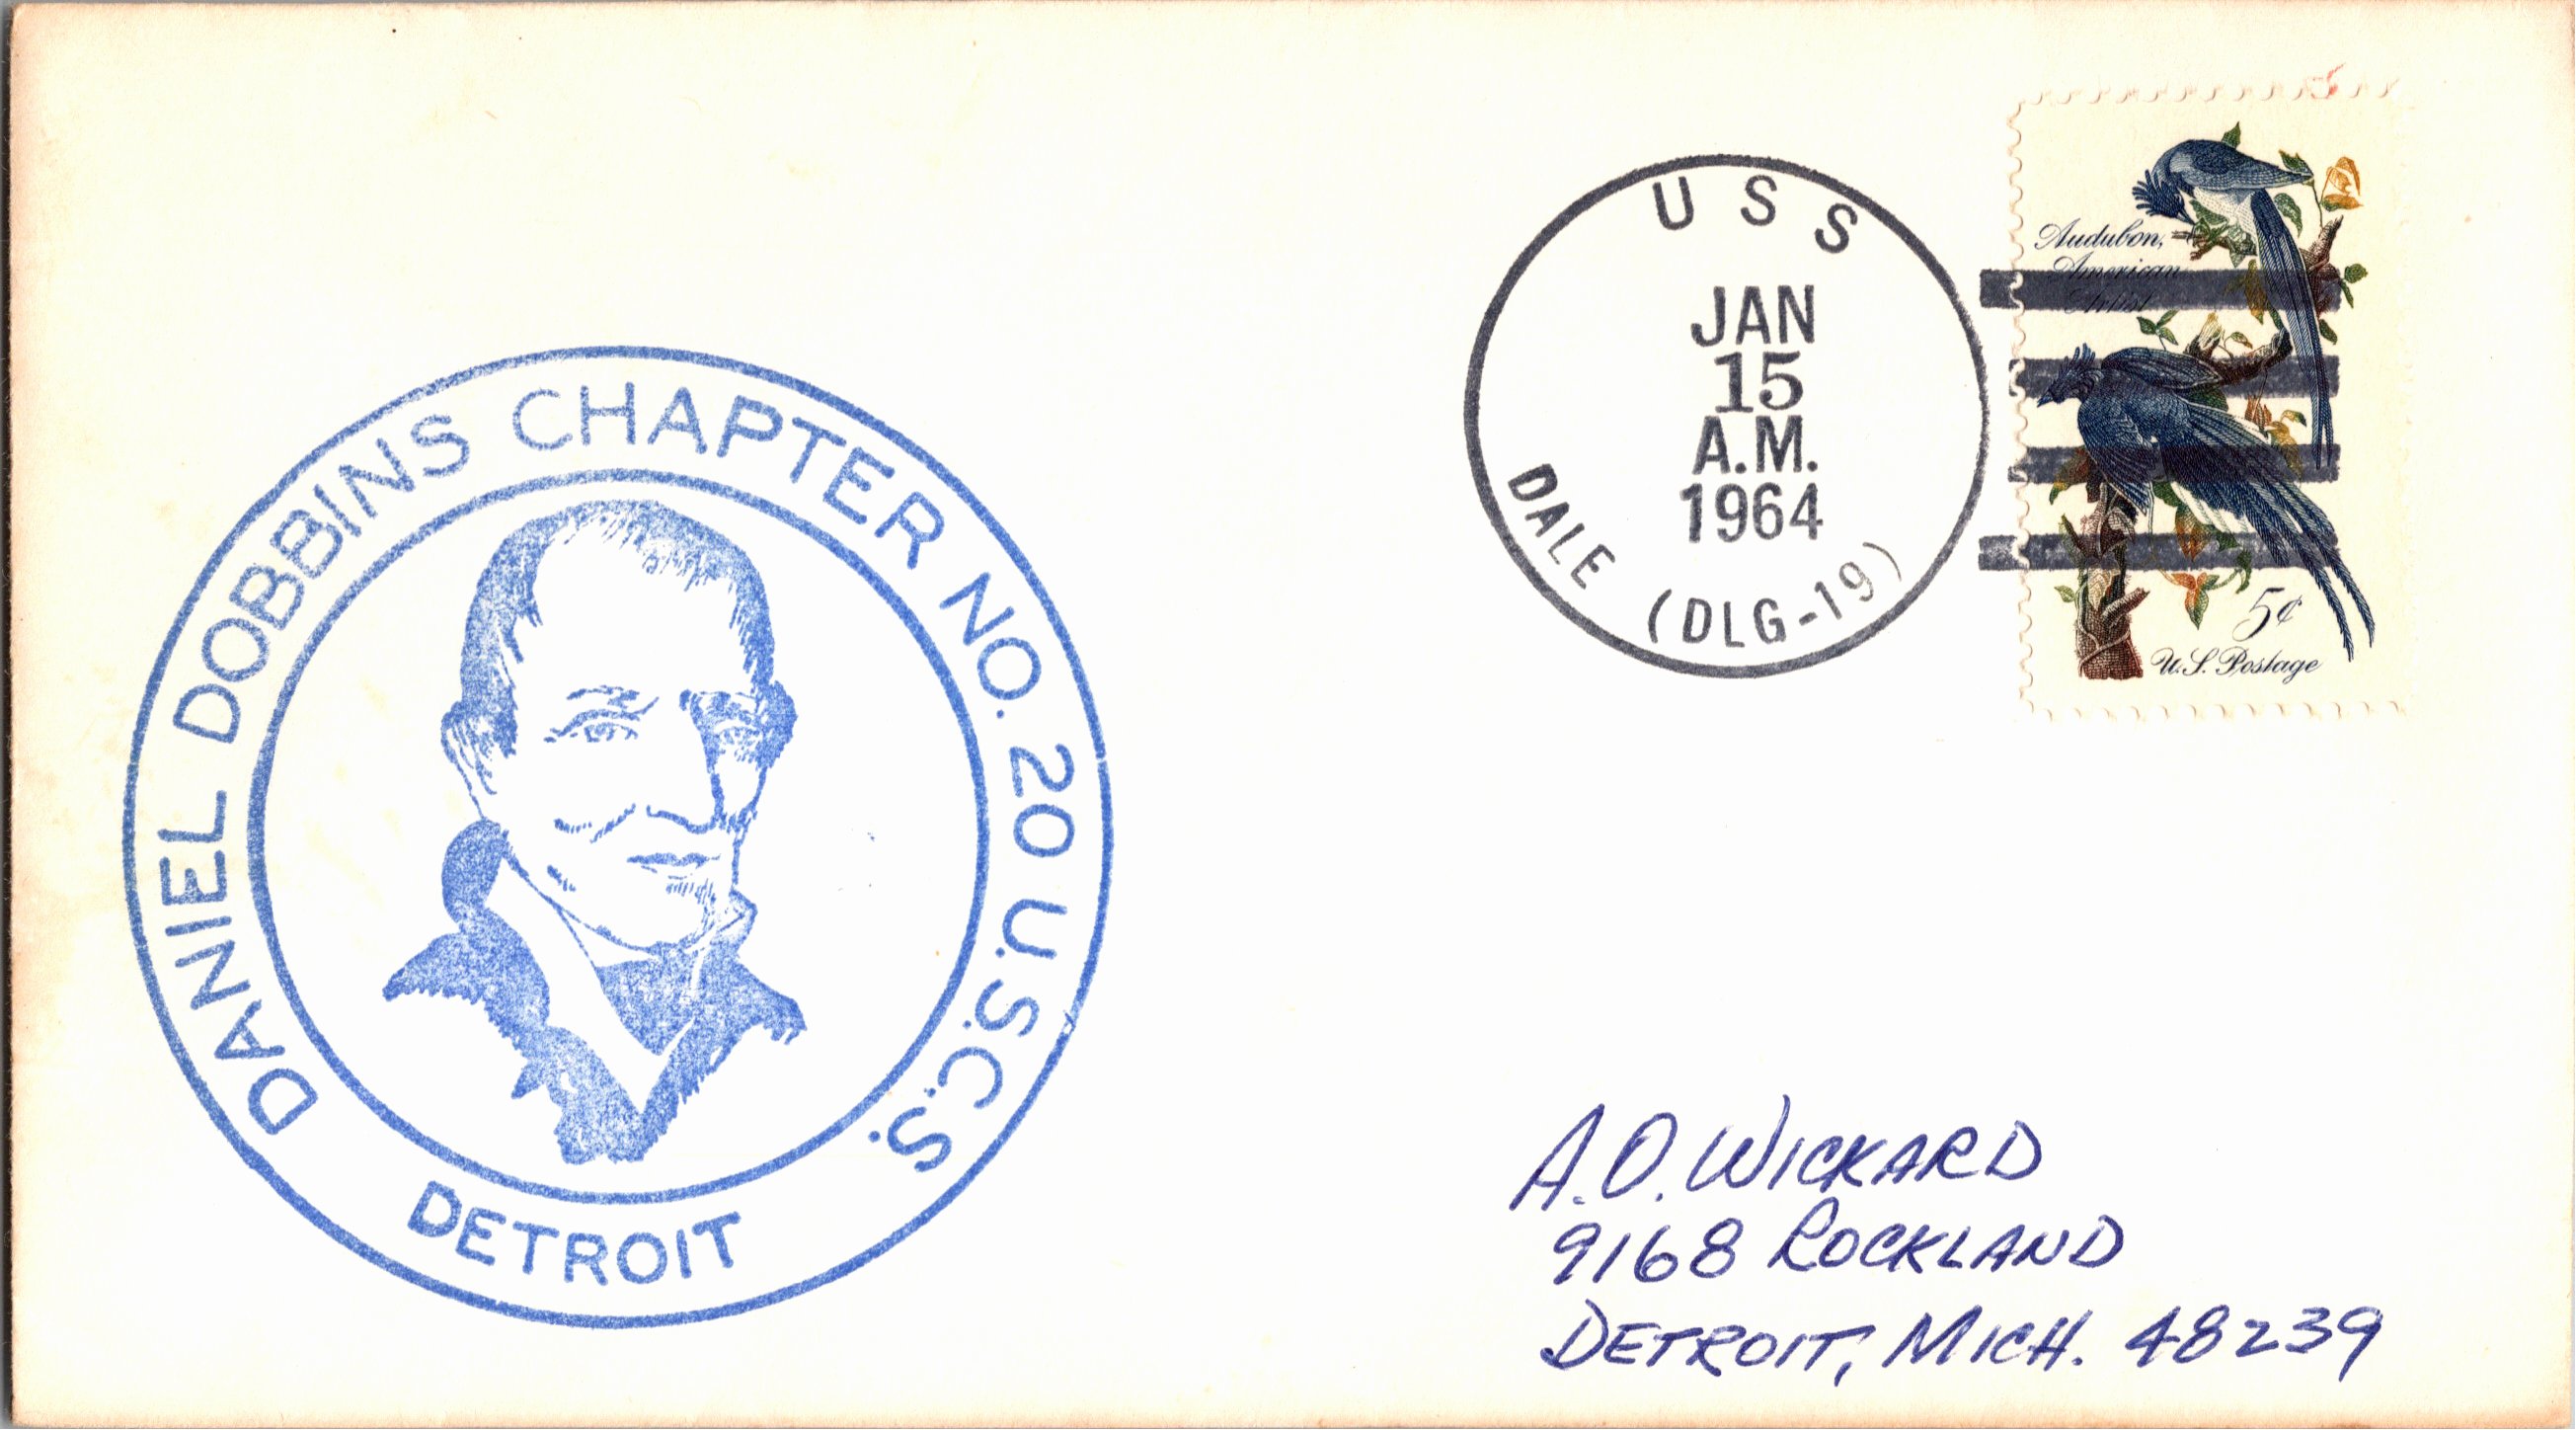 USS
JAN
15
A.M.
1964
DALE (DLG-19)
Audubon,
American
Artist
5¢
U.S. Postage
DANIEL DOBBINS CHAPTER NO. 20 U.S.C.S.
DETROIT
A.O. WICKARD
9168 ROCKLAND
DETROIT, MICH. 48239